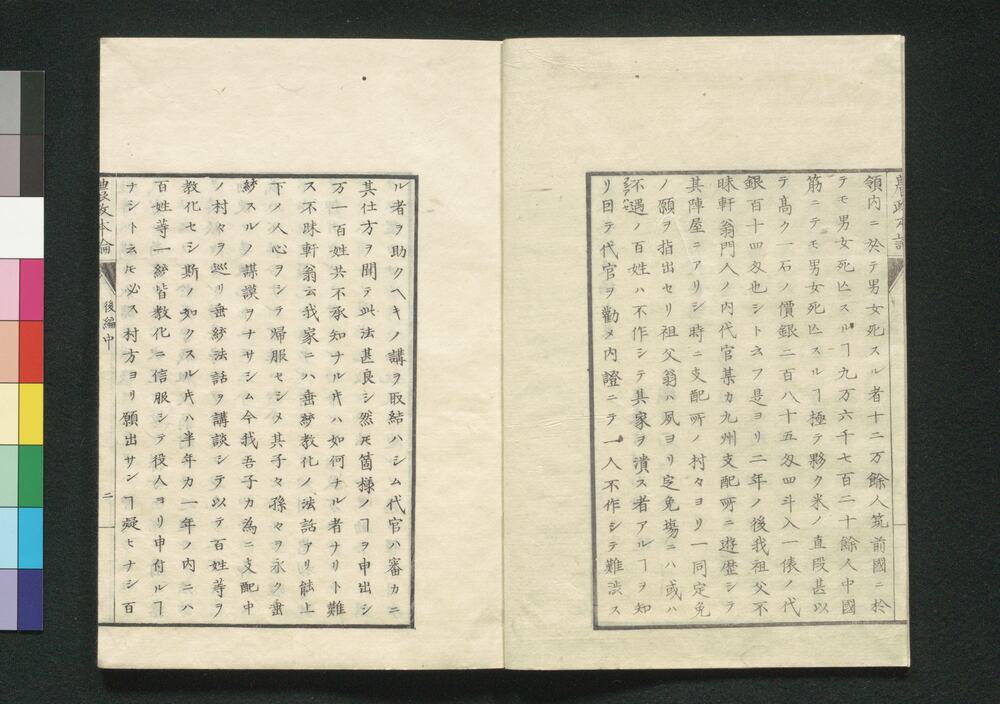 領内ニ於テ男女死スル者十二万餘人筑前國ニ於
テモ男女死亡スルヿ九万六千七百二十餘人中國
筋ニテモ男女死亡スルヿ極テ夥ク米ノ直段甚以
テ高ク一石ノ價銀二百八十五匁四斗入一俵ノ代
銀百十四匁也シト云フ是ヨリ二年ノ後我祖父不
昧軒翁門人ノ内代官某カ九州支配所ニ遊歴シテ
其陣屋ニアリシ時ニ支配所ノ村々ヨリ一同定免
ノ願ヲ指出セリ祖父翁ハ夙ヨリ定免塲ニハ或ハ
不遇ノ百姓ハ不作シテ其家ヲ潰ス者アルヿヲ知
リ因テ代官ヲ勸メ内證ニテ一人不作シテ難渋ス
ル者ヲ助クヘキノ講ヲ取結ハシム代官ハ審カニ
其仕方ヲ聞テ此法甚良シ然𪜈箇様ノヿヲ申出シ
万一百姓共不承知ナル𪜈ハ如何ナル者ナリト難
ス不昧軒翁云我家ニハ垂統教化ノ法話アリ能上
下ノ人心ヲシテ帰服セシメ其子々孫々ヲ永ク垂
統スルノ謀謨ヲナサシム今我吾子カ為ニ支配中
ノ村々ヲ巡リ垂統法話ヲ講談シテ以テ百姓等ヲ
教化セシ斯ノ如クスル𪜈ハ半年カ一年ノ内ニハ
百姓等一統皆教化ニ信服シテ役人ヨリ申付ルヿ
ナシト云𪜈必ス村方ヨリ願出サンヿ疑ヒナシ百
農政本論
後編中
二